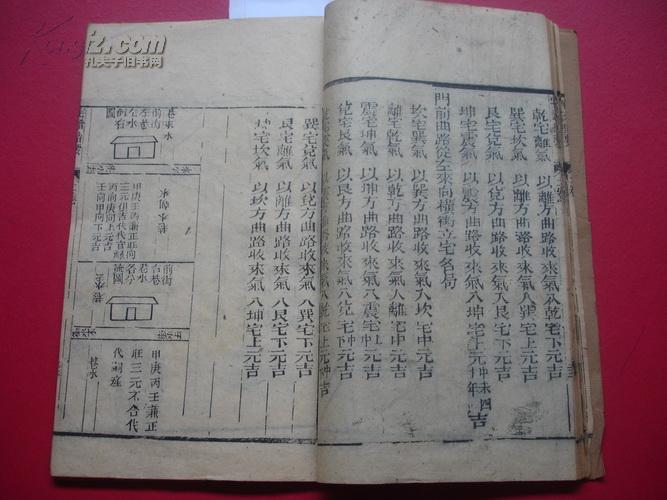 乾宅離氣 以離方曲路收來氣入乾宅下元吉
巽宅坎氣 以離方曲路收來氣入巽宅上元吉
艮宅兌氣 以兌方曲路收來氣入艮宅下元吉
坤宅震氣 以震方曲路收來氣入坤宅上元 吉
門前曲路從左來向橫衝立宅名局
坎宅巽氣 以巽方曲路收來氣入坎宅中元吉
離宅乾氣 以乾方曲路收來氣入離宅中元吉
震宅坤氣 以坤方曲路收來氣入震宅上元吉
兌宅艮氣 以艮方曲路收來氣入兌宅元吉
方曲路收來氣入乾宅上元吉
巽宅兌氣 以兌方曲路收來氣入巽宅下元吉
艮宅離氣 以離方曲路收來氣入艮宅下元吉
坤宅坎氣 以坎方曲路收來氣入坤宅上元吉
巷水
前街
左巷
水
甲庚丙壬兼正旺向
三元
丙向庚向上元吉
壬向甲向下元吉
前街
右巷
巷水
流圖
巷水
甲庚丙壬兼正
旺三元不合代
代
孔夫子旧书网